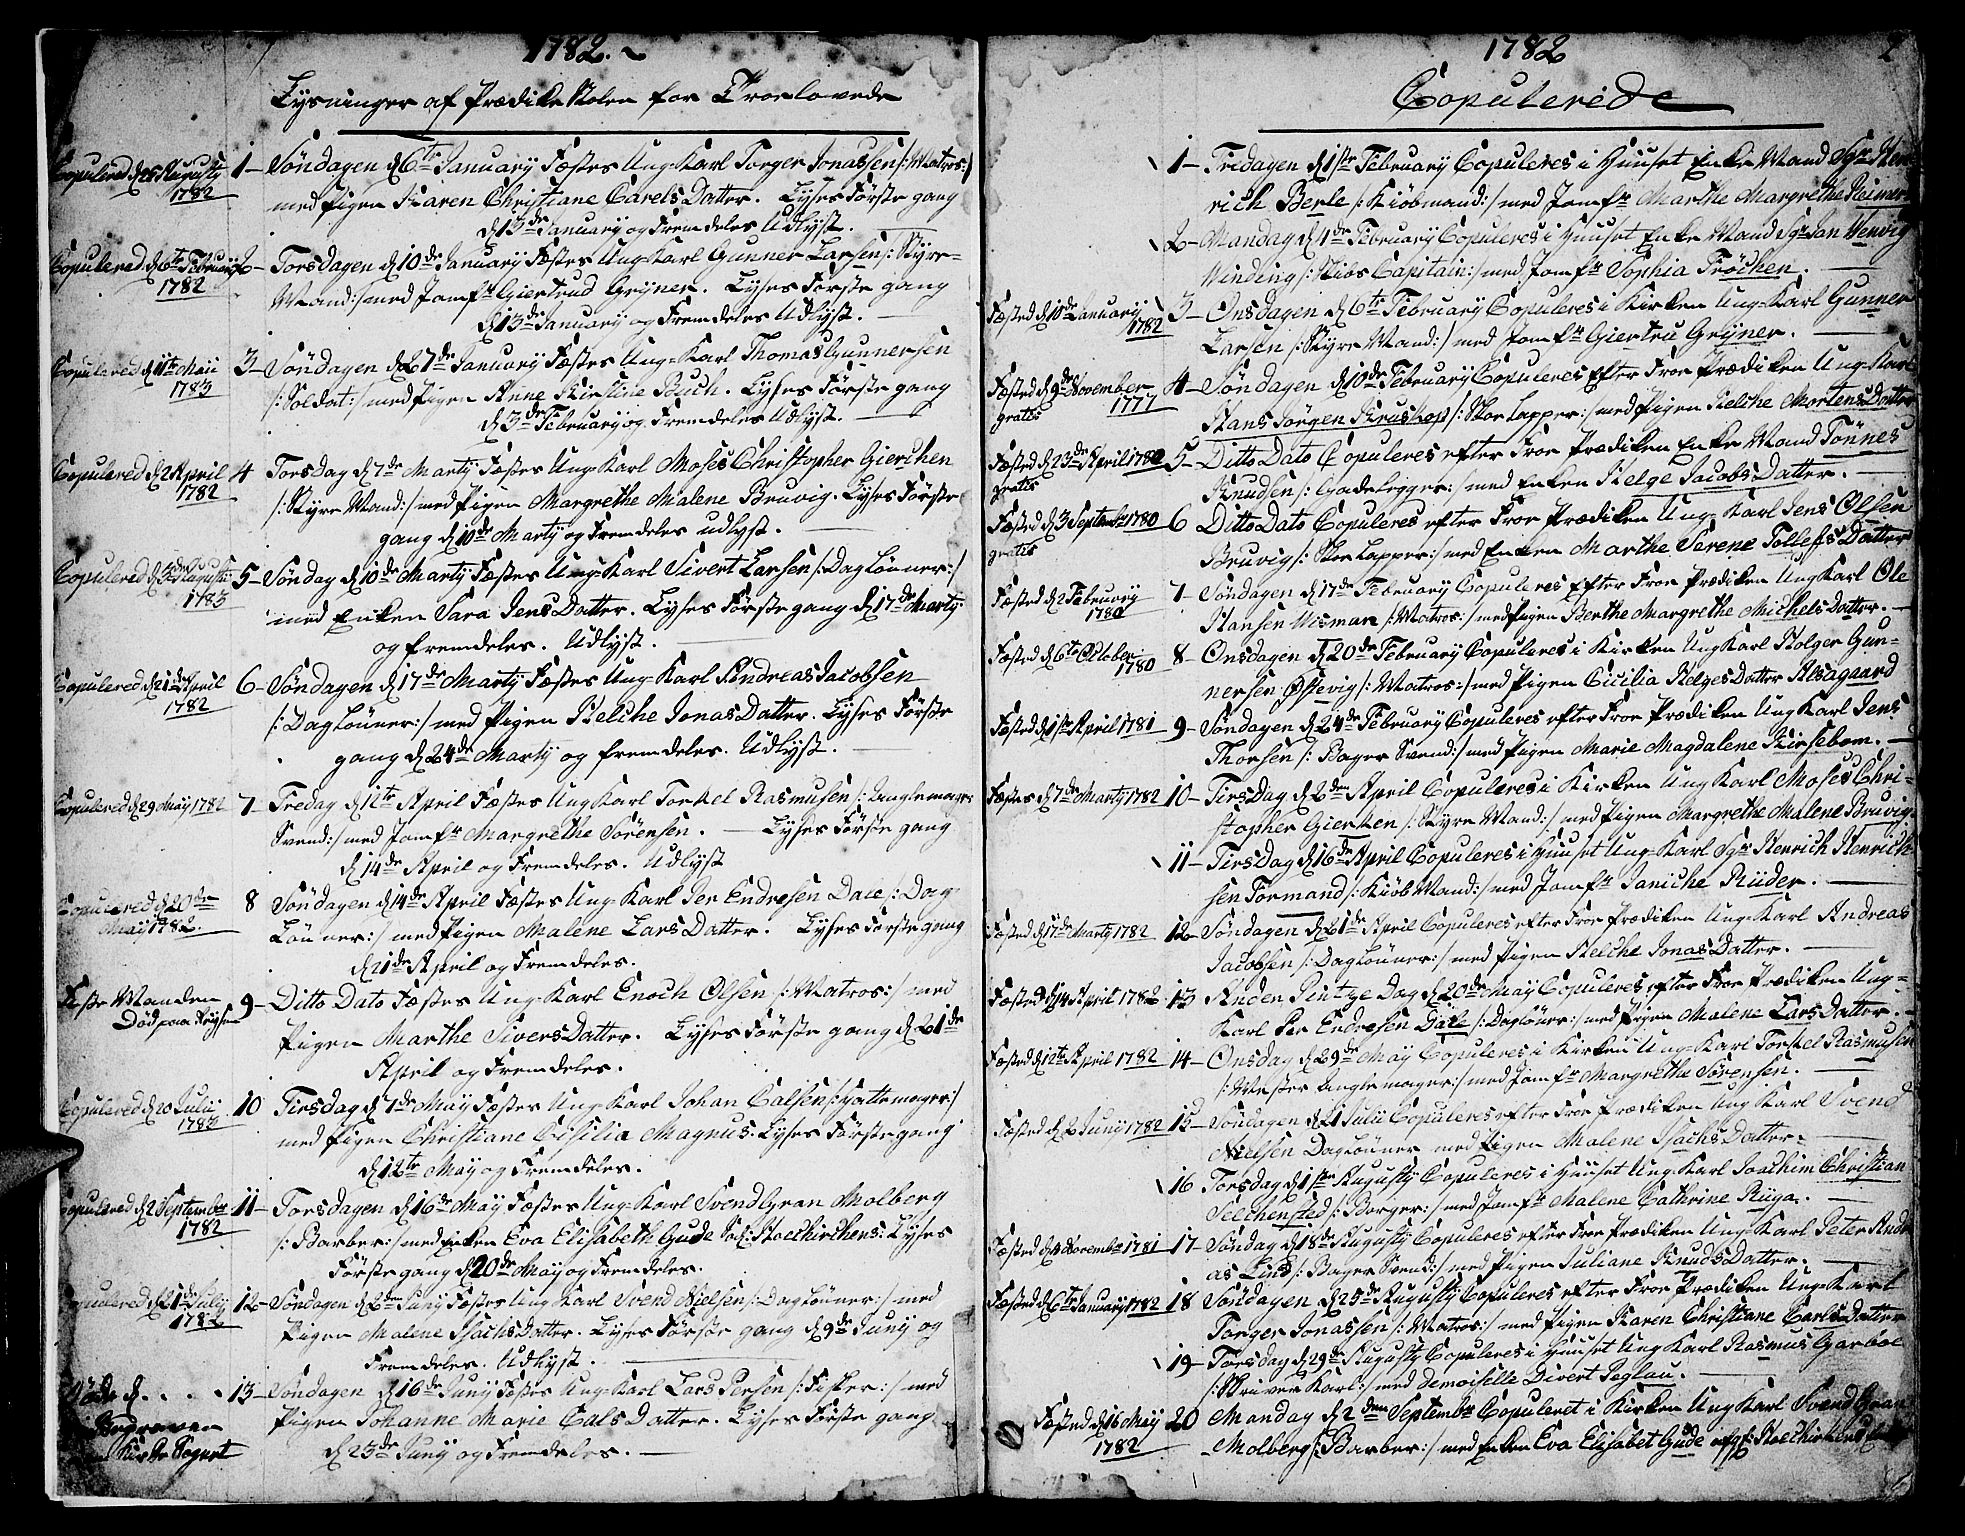 1782.
Lysninger af Prædike Stolen for Troelovede
Copulered d 25 Augusti
1782
1 - Søndagen d 6te January Fæstes Ung-Karl Torger Jonassen /: Matros:/
med Pigen Karen Christiane Carels Datter. Lyses Første gang
d 13de January og Fremdeles Udlyst.
Copulered d 6te February
1782
2 - Torsdagen d 10de January Fæstes Ung Karl Gunner Larsen /: Styre-
Mand:/ med Jomfr Giertrud Gryner. Lyses Første gang
d 13de January og Fremdeles Udlyst.
Copulered d 11te Maii
1783
3 - Søndagen d 27de January Fæstes Ung-Karl Thomas Gunnersen
/: Soldat:/ med Pigen Anne Kirstine Buch. Lyses Første gang
d 3de February og Fremdeles Udlyst.
Copulered d 2 April
1782
4 Torsdag d 7de Marty Fæstes Ung-Karl Moses Christopher Gierchen
/: Styre Mand:/ med Pigen Margrethe Malene Bruvig. Lyses Første
gang d 10de Marty og Fremdeles udlyst.
Copulered d 3de Augusti
1783
5 - Søndag d 10de Marty Fæstes Ung-Karl Sivert Larsen /: Dag Lønner:/
med Enken Sara Jens Datter. Lyses Første gang d 17de Marty
og fremdeles. Udlyst.
Copulered d 21de April
1782
6 - Søndagen d 17de Marty Fæstes Ung-Karl Andreas Jacobsen
/: Dag Lønner:/ med Pigen Helche Jonas Datter. Lyses Første
gang d 24de Marty og fremdeles. Udlyst.
Copulered d 29 May 1782
7 - Fredag d 12te April Fæstes Ung Karl Torkel Rasmusen
Svend:/ med Jomfr Margrethe Sørensen. Lyses Første gang
d 14de April og Fremdeles. Udlyst
Copulered d 20de
May 1782.
8 Søndagen d 14de April Fæstes Ung Karl Per Endresen Dale /: Dag
Lønner:/ med Pigen Malene Lars Datter. Lyses Første gang
d 21de April og Fremdeles.
Fæste Manden
Død paa Reysen
9 - Ditto Dato Fæstes Ung-Karl Enoch Olsen /: Matros:/ med
Pigen Marthe Sivers Datter. Lyses Første gang d 21de
April og Fremdeles.
Copulered d 20 July
1783
10 Tirsdag d 7de May Fæstes Ung Karl Johan Calsen /: Hattemager:/
med Pigen Christiane Cisilia Magnus. Lyses Første gang
d 12te May og Fremdeles.
Copulered d 2 September
1782
11 - Torsdagen d 16de May Fæstes Ung-Karl Svend Gran Molberg
/: Barber:/ med Enken Eva Elisabeth Gude Sal: Stoelkirchens: Lyses
Første gang d 20de May og Fremdeles.
Copulered d 21de July
1782
12 - Søndagen d 2den Juny Fæstes Ung Karl Svend Nielsen /: Dag Lønner:/ med
Pigen Malene Isachs Datter. Lyses Første gang d 9de Juny og
Fremdeles. Udlyst.
13 - Søndagen d 16de Juny Fæstes Ung-Karl Lars Persen /: Fisker:/ med
Pigen Johanne Marie Cals Datter. Lyses Første gang
d 23de Juny og Fremdeles.
Kirke Bogert
1782
2
Copulerede
1 - Fredagen d 1ste February Copuleres i Huuset Enke Mand Sgr Hen-
rich Berle /: Kiöbmand:/ med Jomfr Marthe Margrethe Reimer.
2 - Mandag d 4de February Copuleres i Huuset Enke Mand Sgr Jan Wenvig
Winding /: Skibs Capitain:/ med Jomfr Sophia Fröchen.
Fæsted d 10de January
1782
3 - Onsdagen d 6te February Copuleres i Kirken Ung-Karl Gunner
Larsen /: Styre Mand:/ med Jomfr Giertru Gryner.
Fæsted d 9de November
1777
gratis
4 - Søndagen d 10de February Copuleres Efter Froe Prædiken Ung-Karl
Hans Jørgen Kruskop /: Skoe Lapper:/ med Pigen Helche Mortens Datter
Fæsted d 23de April 1780
gratis
5 - Ditto Dato Copuleres efter Froe Prædiken Enke Mand Tönnes
Knudsen /: Gadelegger:/ med Enken Helge Jacobs Datter.
Fæsted d 3 Septembr 1780
gratis
6 Ditto Dato Copuleres efter Froe Prædiken Ung-Karl Jens Olsen
Bruvig /: Skoe Lapper:/ med Enken Marthe Serene Tollefs Datter
Fæsted d 2 February
1780
7 - Søndagen d 17de February Copuleres Efter Froe Prædiken Ung Karl Ole
Hansen Wisman /: Matros:/ med Pigen Berthe Margrethe Michels Datter.
Fæsted d 6te October
1780
8 - Onsdagen d 20de February Copuleres i Kirken Ung Karl Holger Gun-
nersen Østevig /: Matros:/ med Pigen Cicilia Helges Datter Alsagaard
Fæsted d 1ste April 1781
9 - Søndagen d 24de February Copuleres efter Froe Prædiken Ung Karl Jens
Thorsen /: Bager Svend:/ med Pigen Marie Magdalene Kirsebom.
Fæstes d 7de Marty 1782
10 - Tirsdag d 2den April Copuleres i Kirken Ung Karl Moses Chri-
stopher Gierken /: Styre Mand:/ med Pigen Margrethe Malene Bruvig.
11 - Tirsdag d 16de April Copuleres i Huuset Ung-Karl Sgr Henrich Henrich-
sen Formand /: Kiöb Mand:/ med Jomfr Janiche Rüder.
Fæsted d 17de Marty 1782
12 - Søndagen d 21de April Copuleres efter Froe Prædiken Ung-Karl Andreas
Jacobsen /: Dag Lønner:/ med Pigen Helche Jonas Datter.
Fæsted d 14 April 1782
13 Anden Pintze Dag d 20de May Copuleres efter Froe Prædiken Ung-
Karl Per Endresen Dale /: Dag Løner:/ med Pigen Malene Lars Datter.
Fæsted d 12te April 1782
14 - Onsdag d 29de May Copuleres i Kirken Ung-Karl Torkel Rasmusen
/: Mester:/ med Jomfr Margrethe Sørensen.
Fæsted d 2 Juni 1782
15 - Søndagen d 21 Julii Copuleres efter Froe Prædiken Ung Karl Svend
Nielsen Dag Lønner med Pigen Malene Isachs Datter.
16 Torsdag d 1ste Augusty Copuleres i Huuset Ung-Karl Joachim Christian
Selchensted /: Borger:/ med Jomfr Malene Cathrine Rüga.
Fæsted d 4 Novembr 1781
17 - Søndag d 18de Augusty Copuleres efter Froe Prædiken Ung-Karl Peter Andre
as Lind /: Bager Svend:/ med Pigen Juliane Knuds Datter.
Fæsted d 6te January 1782
18 Søndagen d 25de Augusty Copuleres efter Froe Prædiken Ung-Karl
Torger Jonassen /: Matros:/ med Pigen Karen Christiane Carls Datter
19 - Torsdag d 29de Augusty Copuleres i Huuset Ung Karl Rasmus Garboe
/: Skriver Karl:/ med Demoiselle Divert Peglau.
Fæsted d 16 May
1782
20 Mandag d 2den Septembr Copuleret i Kirken Ung Karl Svend Gran
Molberg /: Barber:/ med Enken Eva Elisabet Gude